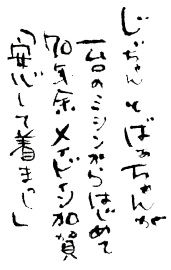 じいちゃんとばあちゃんが
一台のミシンからはじめて
70年余メイドイン加賀
「安心して着まっし」